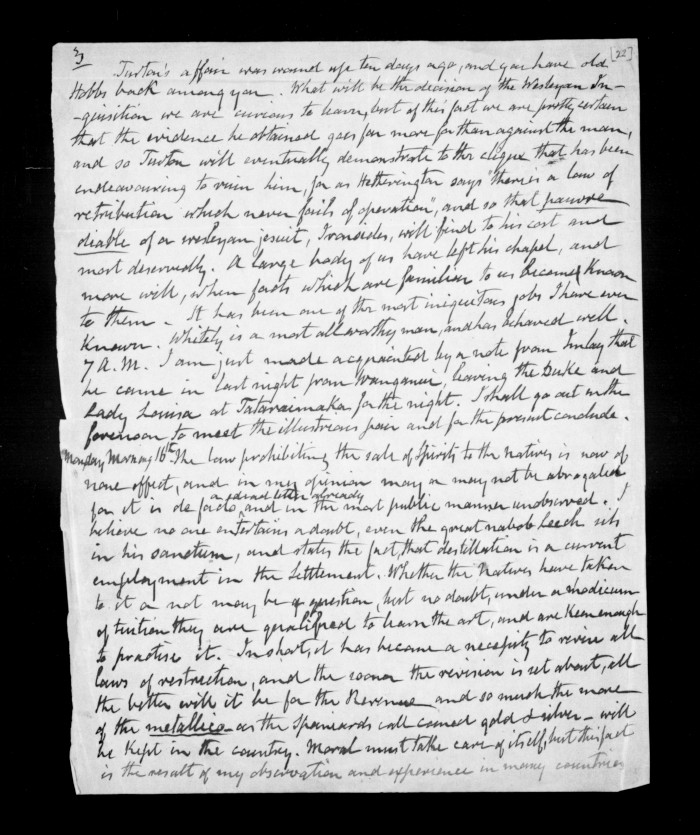 3
[22]
Turton's affair was wound up ten days ago, and you have old
Hobbs back among you. What will be the decision of the Wesleyan In-
-quisition we are curious to learn, but of this fact we are pretty certain
that the evidence he obtained goes far more for than against the man,
and so Turton will eventually demonstrate to the clique that has been
endeavouring to ruin him, for as Hetherington says "there is a law of
retribution which never fails of operation", and so that pauvre
diable of a wesleyan jesuit, Ironsides, will find to his cost and
most deservedly. A large body of us have left his chapel, and
more will, when facts which are familiar to us become known
to them - It has been one of the most iniquitous jobs I have ever
known. Whitely is a most all worthy man, and has behaved well.
7 A.M. I am just made acquainted by a note from Imlay that
he came in last night from Wanganui, leaving the Duke and
Lady Louisa at Tataraimaka for the night. I shall go out in the
forenoon to meet the illustrious pair and for the present conclude.
Monday Morning 16th The law prohibiting the sale of Spirits to the natives is now of
none effect, and in my opinion may or may not be abrogated
a dead letter already
for it is de facto, and in the most public manner unobserved. I
believe no one entertains a doubt, even the great nabob Leech sits
in his sanctum, and states the fact, that destillation is a current
employment in the Settlement. Whether the Natives have taken
to it or not may be a question, but no doubt, under a modicum
of tuition they are qualified to learn the art, and are keen enough
to practise it. In short, it has become a necessity to revise all
laws of restriction, and the sooner the revision is set about, all
the better will it be for the Revenue and so much the more
of the metallico - as the Spaniards call coined gold & silver - will
be kept in the country. Moral must take care of itself, but this fact
is the result of my observation and experience in many countries